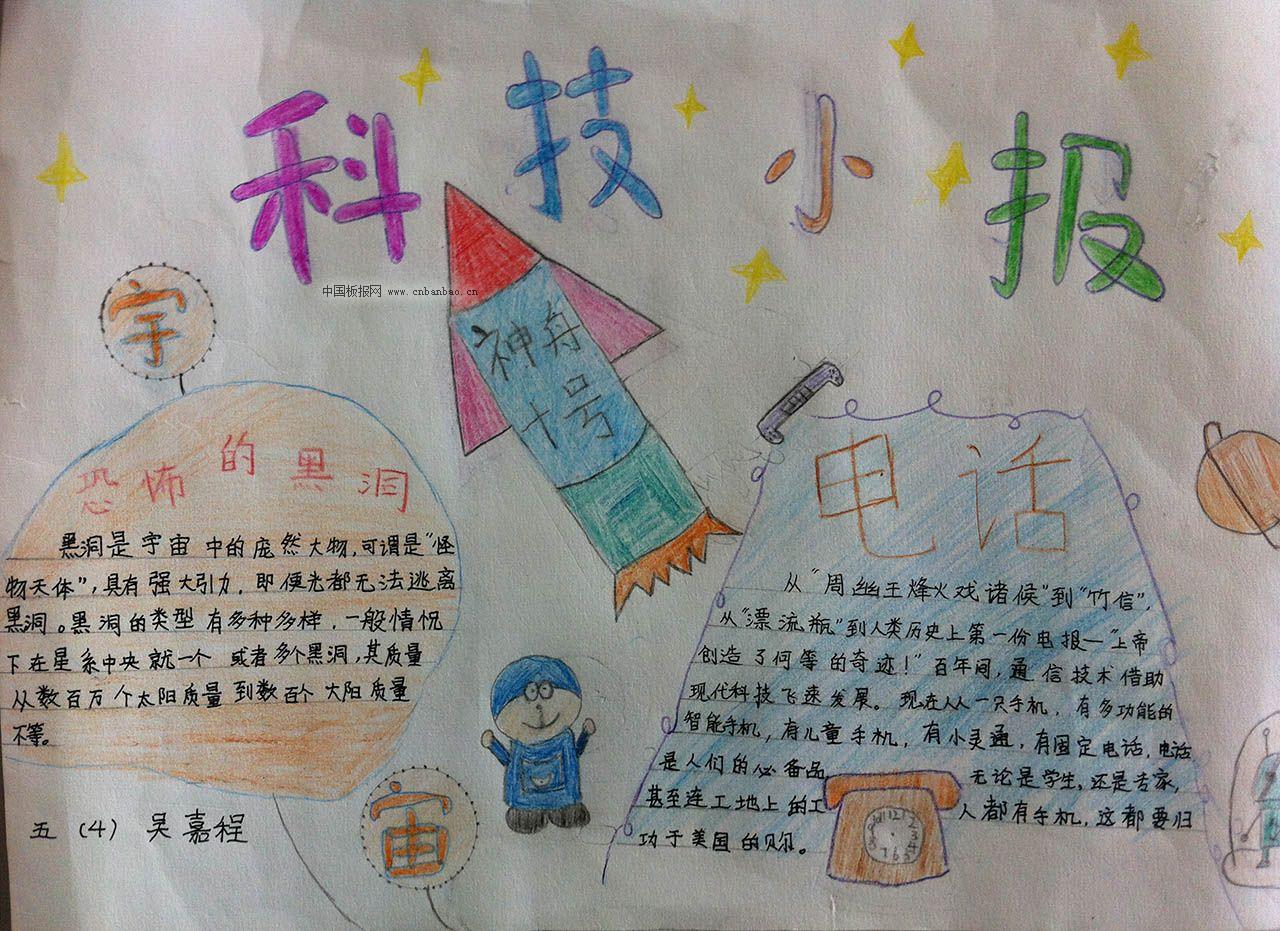 科技小报
中国板报网 www.cnbanbao.cn
宇
神舟
十号
恐怖的黑洞
黑洞是宇宙中的庞然大物,可谓是“怪
物天体”,具有强大引力,即便光都无法逃离
黑洞。黑洞的类型有多种多样,一般情况
下在星系中央就一个或者多个黑洞,其质量
从数百万个太阳质量到数百个太阳质量
不等。
宙
五(4) 吴嘉程
电话
从“周幽王烽火戏诸候”到“竹信”,
从“漂流瓶”到人类历史上第一份电报—“上帝
创造了何等的奇迹!”百年间,通信技术借助
现代科技飞速发展。现在人人一只手机,有多功能的
智能手机,有儿童手机,有小灵通,有固定电话,电话
是人们的必备品 无论是学生,还是专家,
甚至连工地上的工人都有手机,这都要归
功于美国的贝尔。
11 12 1 2 3 4 5 6 7